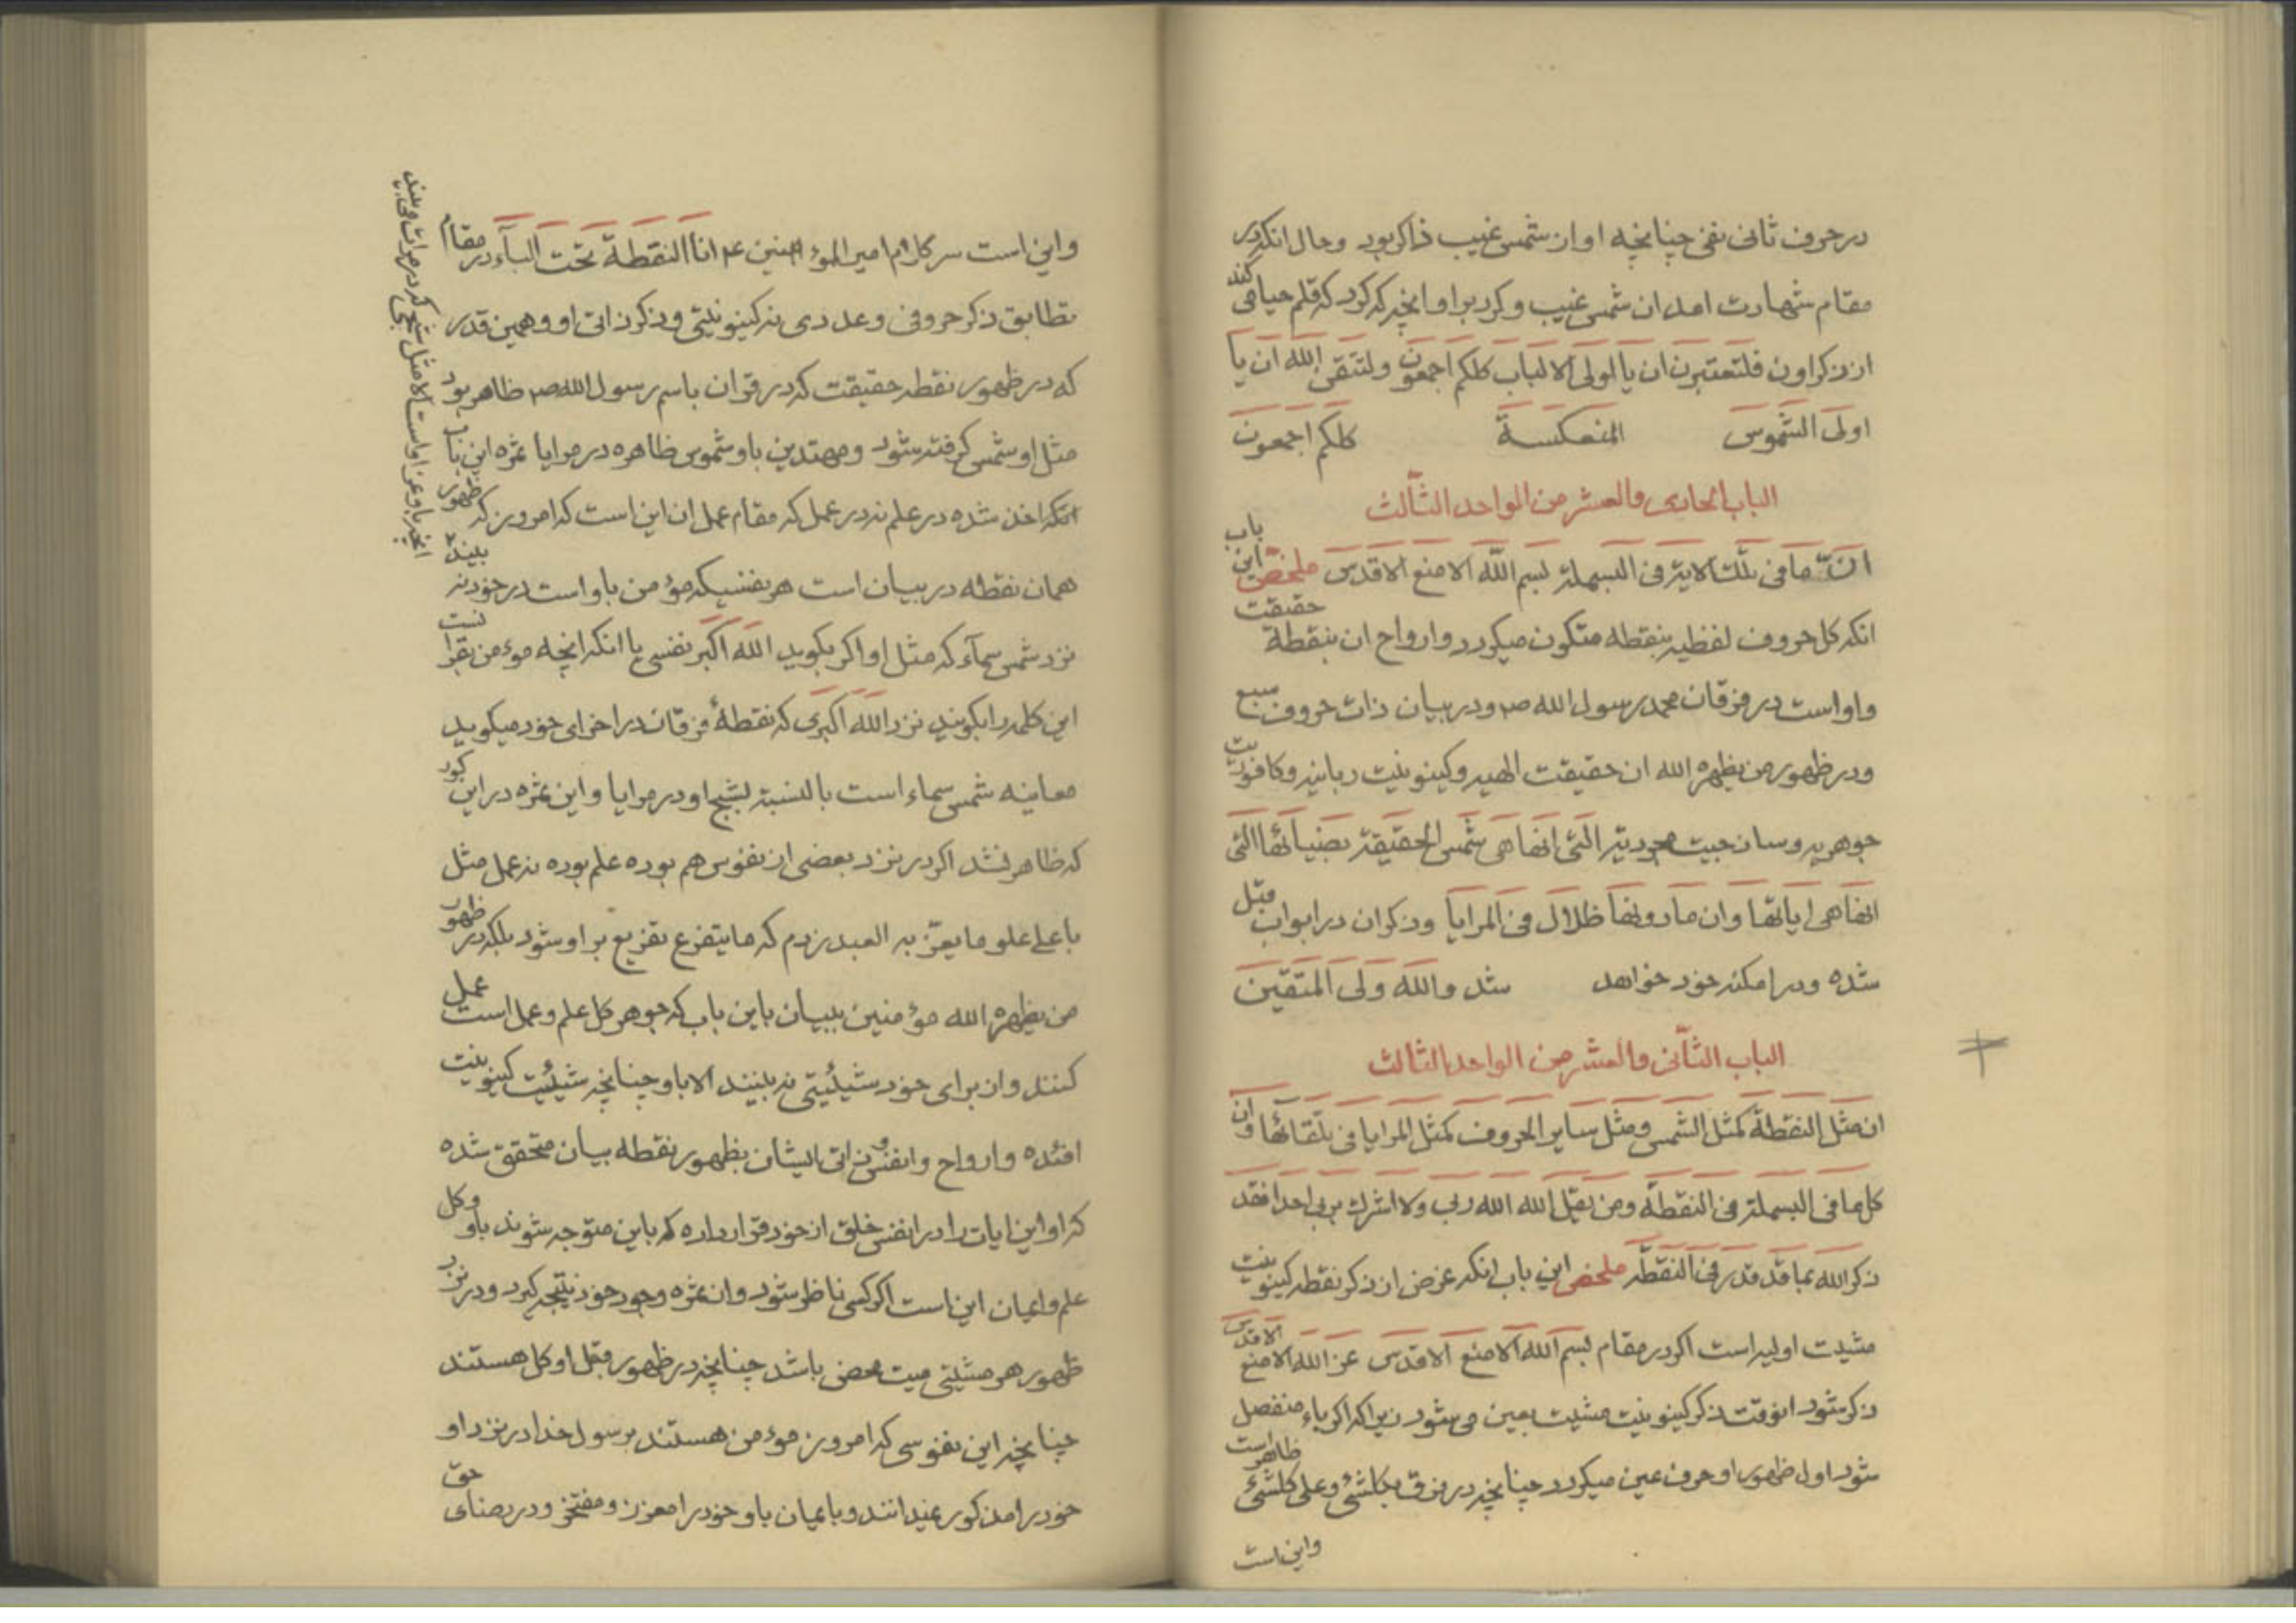 در حرف ثانی نفی چنانچه او از شمس غیب ذاکر بود و حال انکه در
مقام شهادت امد ان شمس غیب و کرد بر او انچه که کرد که قلم حیا می کند
از ذکر اون فلتعتبرن ان یا اولی الالباب کلکم اجمعون ولتتقی الله ان یا
اولی الشموس المنعکسة کلکم اجمعون
الباب الحادی والعشر من الواحد الثالث
ان ما فی تلک الایة فی البسملة بسم الله الامنع الاقدس ملخص این باب
انکه کل حروف لفظیه بنقطه متکون میکردد و ارواح ان بنقطة حقیقت
و او است در فرقان محمد رسول الله ص و در بیان ذات حروف سبع
و در ظهور من یظهره الله ان حقیقت الهیه و کینونیت ربانیه و کافوریت
جوهریه و ساذجیت مجردیه التی انها هی شمس الحقیقة بضیائها التی
انها هی ایاتها وان ما دونها ظلال فی المرایا و ذکر ان در ابواب قبل
شده و در امکنه خود خواهد شد والله ولی المتقین
الباب الثانی والعشر من الواحد الثالث
ان مثل النقطة کمثل الشمس ومثل سایر الحروف کمثل المرایا فی تلقائها وان
کل ما فی البسملة فی النقطة ومن یقل الله الله ربی ولا اشرک بربی احدا فقد
ذکر الله بما قد قدر فی النقطه ملخص این باب انکه غرض از ذکر نقطه کینونیت
مشیت اولیه است اکر در مقام بسم الله الامنع الاقدس عز الله الامنع الاقدس
ذکر شود انوقت ذکر کینونیت مشیت بعین می شود زیرا که اکر باء منفصل
شود اول ظهور او حرف عین میکردد چنانچه در فوق بکلشئ وعلی کلشئ ظاهر است
و این است
و این است سر کلام امیر المؤمنین ع م انا النقطة تحت الباء در مقام
تطابق ذکر حروفی و عددی نه کینونیتی و ذکر ذاتی او و همین قدر
که در ظهور نقطه حقیقت که در قران باسم رسول الله ص ظاهر بود
مثل او شمس کرفته شود و مهتدین باو شموس ظاهره در مرایا ثمره این باب
انکه اخذ شده در علم نه در عمل که مقام عمل ان این است که امروز که ظهور
همان نقطه در بیان است هر نفسیکه مؤمن باو است در خود نه بیند
نزد شمس سماء که مثل او اکر بکوید الله اکبر نفسی یا انکه انچه مؤمن بقرا
این کلمه را بکویند نزد الله اکبری که نقطهٔ فرقان در اخرای خود میکوید
معاینه شمس سماء است بالنسبة بشبح او در مرایا و این ثمره در این کور
که ظاهر نشد اکر در نزد بعضی از نفوس هم بوده علم بوده نه عمل مثل
باعلی علو ما یعز به العبد نزدم که ما یتفرع بفریع بر او شود بلکه در ظهور
من یظهره الله مؤمنین ببیان باین باب که جوهر کل علم و عمل است عمل
کنند و از برای خود شیئیتی نه بینند الا باو چنانچه شیئیت کینونیت
افئده و ارواح و انفس و ذاتی ایشان بظهور نقطه بیان متحقق شده
که او این ایات را در انفس خلق از خود قرار داده که باین متوجه شوند باو و کل
علم و اعیان این است اکر کسی ناظر شود و از ثمره وجود خود نتیجه کیرد و در نزد
ظهور هر مشیتی میت محض باشد چنانچه در ظهور قبل او کل هستند
چنانچه این نفوسی که امروز مؤمن هستند برسول خدا در نزد او
خود را مذکور نمیدانند و بایمان باو خود را معزز و مفتخر و در رضای حق